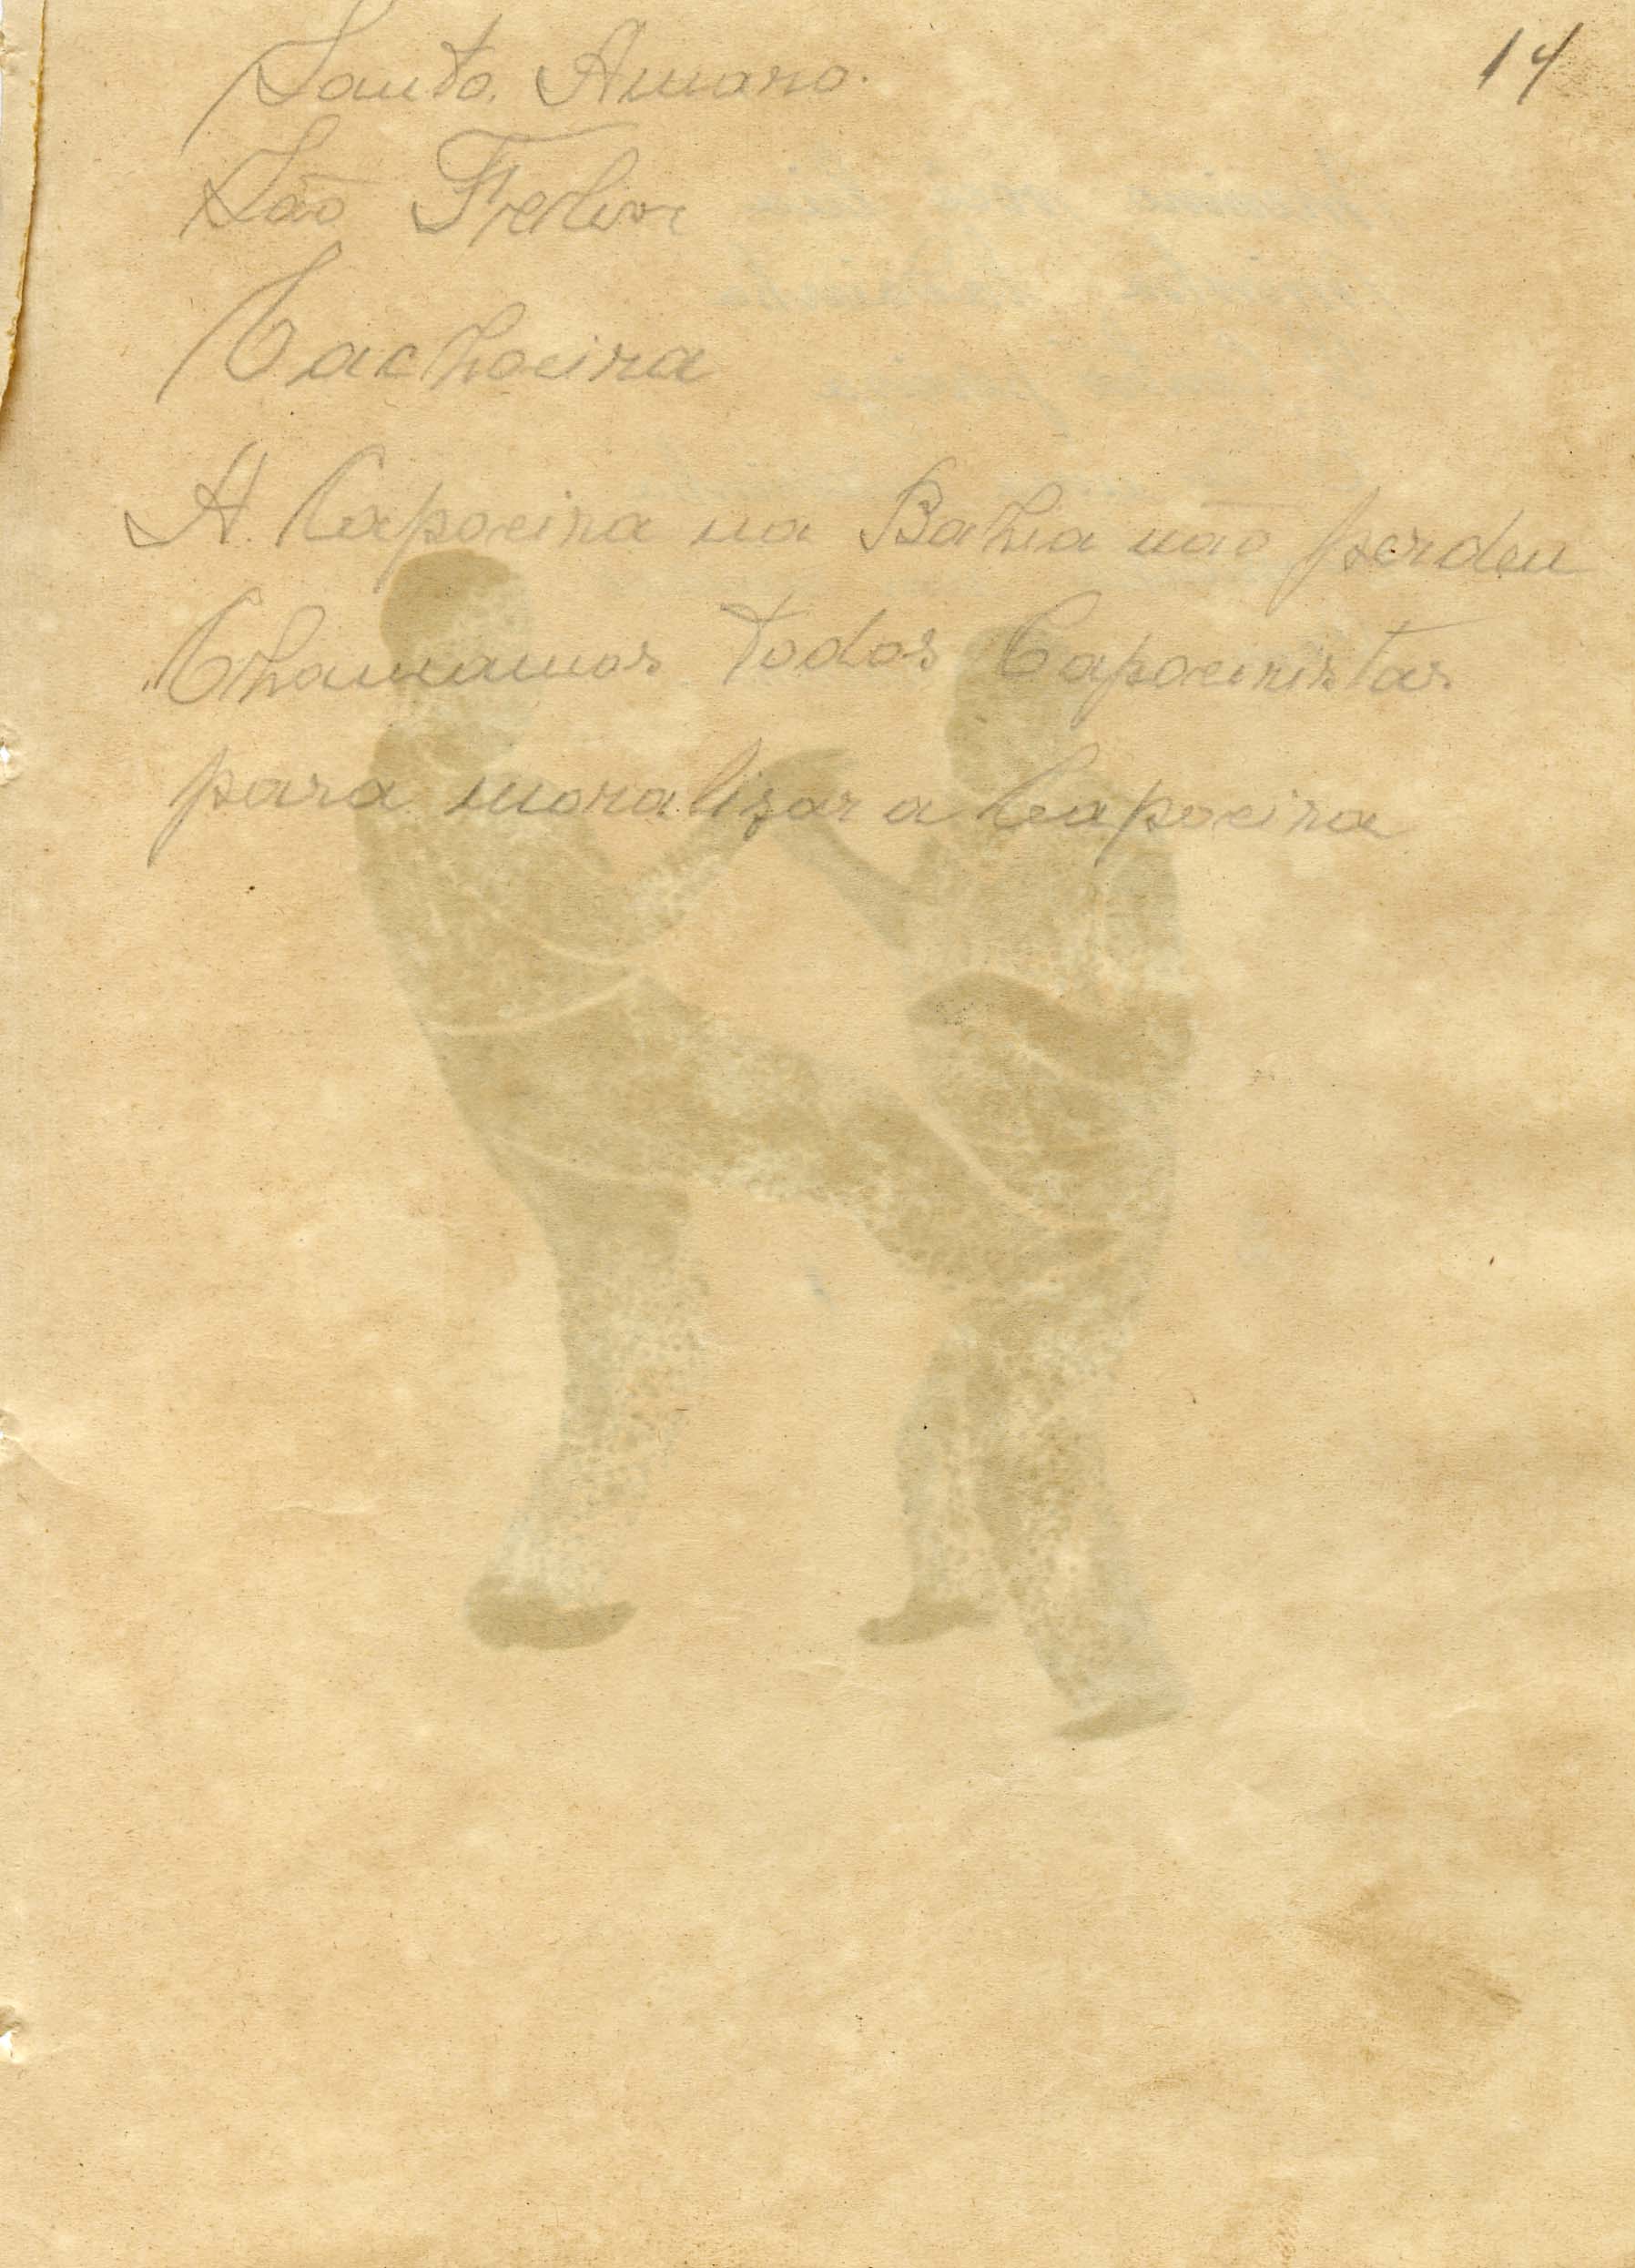 14
Santo. Amaro.
São
Cachoeira
A. Capoeira na Bahia não perdeu
Chamamos todos Capoeiristas.
para moralizar a Capoeira